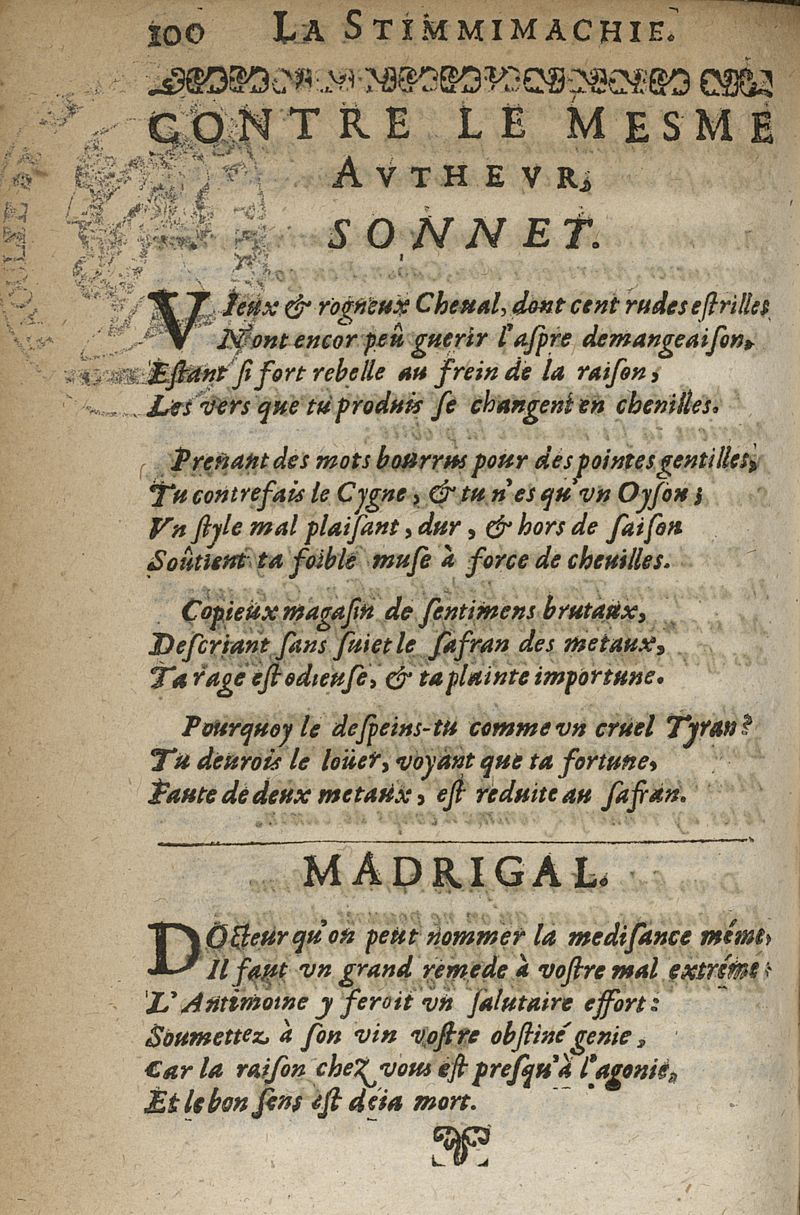 100 LA STIMMIMACHIE.
CONTRE LE MESME
AVTHEVR,
SONNET.
VIeux & rogneux Cheual, dont cent rudes eſtrilles
N'ont encor peû guerir l'aſpre demangeaiſon,
Eſtant ſi fort rebelle au frein de la raiſon,
Les vers que tu produis ſe changent en chenilles.
Prenant des mots bourrus pour des pointes gentilles,
Tu contrefais le Cygne, & tu n'es qu'vn Oyſon;
Vn ſtyle mal plaiſant, dur, & hors de ſaiſon
Soûtient ta foible muſe à force de cheuilles.
Copieux magaſin de ſentimens brutaux,
Deſcriant ſans ſuiet le ſafran des metaux,
Ta rage eſt odieuſe, & ta plainte importune.
Pourquoy le deſpeins-tu comme vn cruel Tyran?
Tu deurois le loüer, voyant que ta fortune,
Faute de deux metaux, eſt reduite au ſafran.
MADRIGAL.
DOcteur qu'on peut nommer la mediſance méme,
Il faut vn grand remede à voſtre mal extréme:
L'Antimoine y feroit vn ſalutaire effort:
Soumettez à ſon vin voſtre obſtiné genie,
Car la raiſon chez vous eſt preſqu'à l'agonie,
Et le bon ſens eſt deia mort.